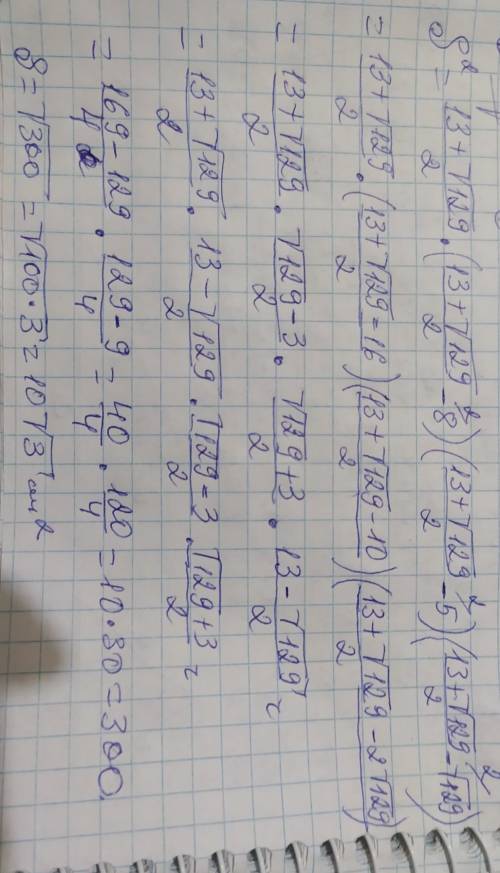 S² = (13+√129)/2 · ((13+√129)/2 - 8^{\2}) ((13+√129)/2 - 5^{\2}) ((13+√129)/2 - √129^{\2})
= (13+√129)/2 · ((13+√129=16)/2) ((13+√129-10)/2) ((13+√129-2√129)/2)
= (13+√129)/2 · (√129-3)/2 · (√129+3)/2 · (13-√129)/2 =
= (13+√129)/2 · (13-√129)/2 · (√129=3)/2 · (√129+3)/2 =
= (169-129)/4 · (129-9)/4 = 40/4 · 120/4 = 10·30=300.
S = √300 = √100·3 = 10√3 см²